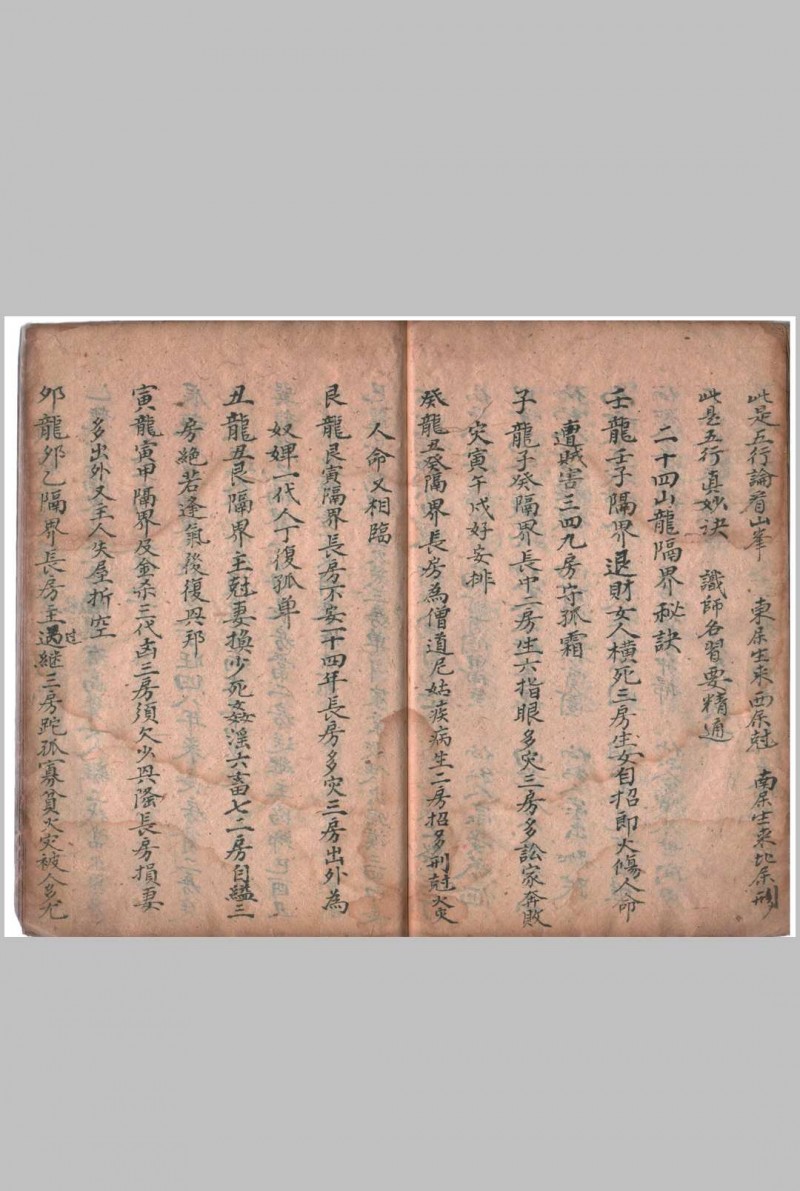 此是五行論看山峯　東屏生來西屏尅　南屏生來北屏形
此是五行真妙決　識師各習要精通
二十四山龍隔界秘訣
壬龍壬子隔界退財女人橫死三房生女自招郎火傷人命
遭賊害三四九房守孤霜
子龍子癸隔界長中二房生六指眼多灾三房多訟家奔敗
灾寅午戌好安排
癸龍丑癸隔界長房為僧道尼姑疾病生二房招多刑尅火灾
人命又相臨
艮龍艮寅隔界長房不安二十四年長房多灾三房出外為
奴婢一代人丁復孤单
丑龍丑艮隔界主尅妻換少死姦滛六畜七二房自縊三
房絕若逢氣後復興邦
寅龍寅甲隔界及金杀三代凾三房須欠少興隆長房損妻
多出外又主人失屋折空
夘龍夘乙隔界長房主過継三房跎孤寡貧火灾被人多尤